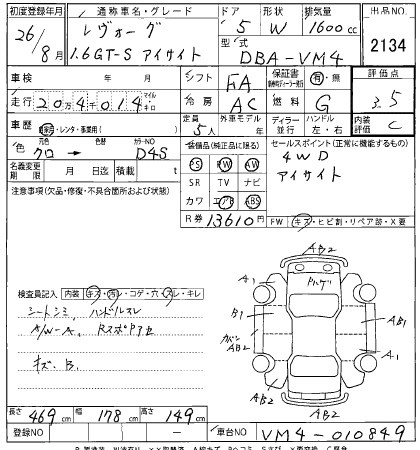 初度登録年月 通称車名・グレード ドア 形状 排気量 出品NO
26/8月 レヴォーグ 1.6GT-S アイサイト 5 W 1600cc 2134
型式 DBA-VM4
車検 年 月 シフト FA 保証書 有・無 評価点 3.5
走行 20万4千014 マイル キロ 冷房 AC 燃料 G
車歴 自家用・レンタ・事業用( ) 定員 5人 外車モデル 年 ディーラー 並行 ハンドル 左・右 内装評価 C
色 元色 クロ → 色替 カラーNO D4S 装備品(純正品に限る) セールスポイント(正常に機能するもの)
名義変更期限 月 日迄 積載 t PS PW AW 4WD
注意事項(欠品・修復・不具合箇所および状態) SR TV ナビ アイサイト
カワ エアB ABS
R券 13610円 FW キズ・ヒビ割・リペア跡・X要
検査員記入 内装 キズ・汚レ・コゲ・穴・スレ・キレ
シートシミ、ハンドルスレ
A/W-A、RスポPアセ
キズ、B.
AB2
A1 Pルゲキ A1
B1 AB1
AB2 AB2
A1 AB2
AB2
長さ 469cm 幅 178cm 高さ 149cm
登録NO 車台NO VM4-010849